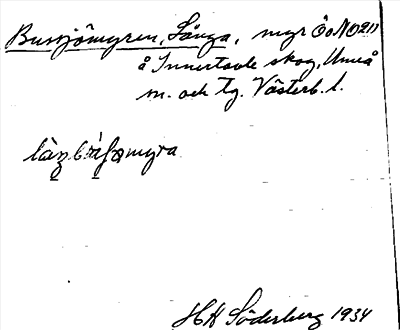 Bussjömyren, Långa, myr Ö o N O 211
å Innertavle skog, Umeå
m. och tg. Västerb. l.
HH Söderberg 1934